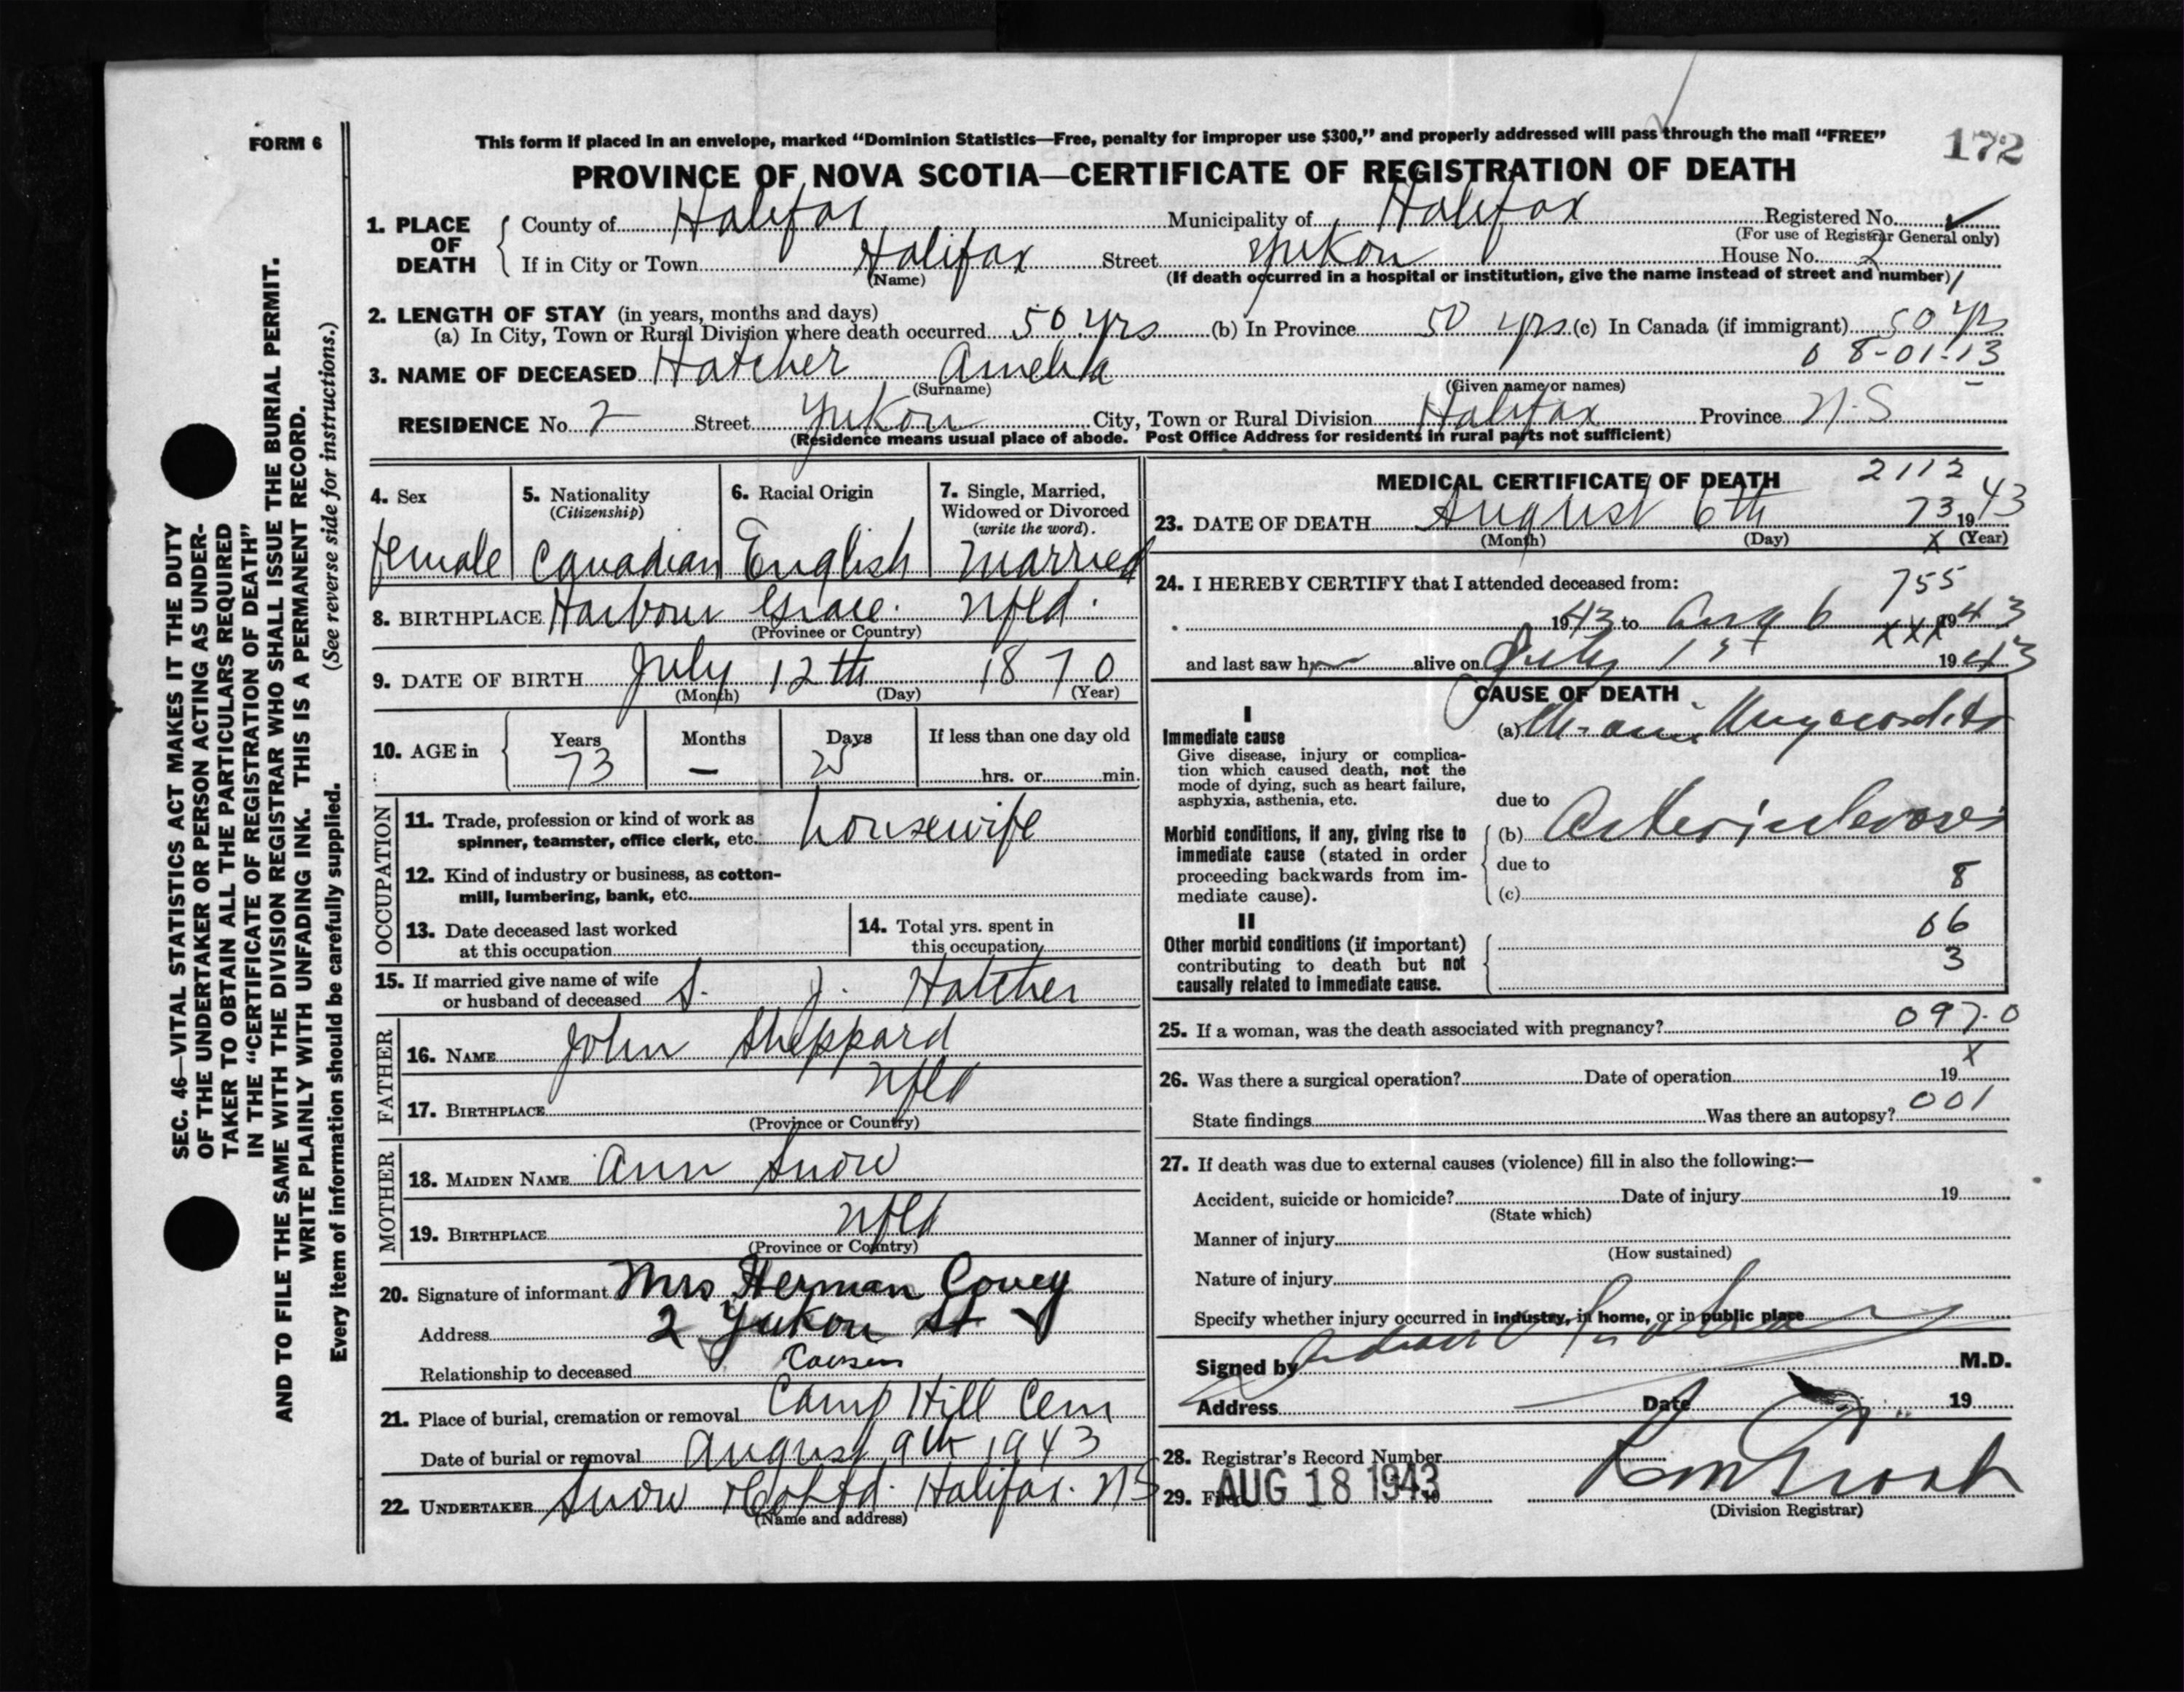 FORM 6
This form if placed in an envelope, marked “Dominion Statistics—Free, penalty for improper use $300,” and properly addressed will pass through the mail “FREE”
172
PROVINCE OF NOVA SCOTIA—CERTIFICATE OF REGISTRATION OF DEATH
1. PLACE OF DEATH
County of Halifax Municipality of Halifax Registered No.
(For use of Registrar General only)
If in City or Town Halifax Street Yukon House No. 2
(Name) (If death occurred in a hospital or institution, give the name instead of street and number)
2. LENGTH OF STAY (in years, months and days)
(a) In City, Town or Rural Division where death occurred 50 yrs (b) In Province 50 yrs (c) In Canada (if immigrant) 50 yrs
8-01-13
3. NAME OF DECEASED Hatcher Amelia
(Surname) (Given name or names)
RESIDENCE No. 2 Street Yukon City, Town or Rural Division Halifax Province N.S
(Residence means usual place of abode. Post Office Address for residents in rural parts not sufficient)
4. Sex
female
5. Nationality
(Citizenship)
Canadian
6. Racial Origin
English
7. Single, Married,
Widowed or Divorced
(write the word).
Married
8. BIRTHPLACE Harbour Grace. Nfld.
(Province or Country)
9. DATE OF BIRTH July 12th 1870
(Month) (Day) (Year)
10. AGE in
Years Months Days If less than one day old
73 — 25 hrs. or min.
OCCUPATION
11. Trade, profession or kind of work as
spinner, teamster, office clerk, etc. housewife
12. Kind of industry or business, as cotton-
mill, lumbering, bank, etc.
13. Date deceased last worked
at this occupation
14. Total yrs. spent in
this occupation
15. If married give name of wife
or husband of deceased S. J. Hatcher
FATHER
16. NAME John Sheppard
17. BIRTHPLACE Nfld
(Province or Country)
MOTHER
18. MAIDEN NAME Ann Snow
19. BIRTHPLACE Nfld
(Province or Country)
20. Signature of informant Mrs Herman Covey
Address 2 Yukon St
Relationship to deceased Cousin
21. Place of burial, cremation or removal Camp Hill Cem
Date of burial or removal August 9th 1943
22. UNDERTAKER Snow & Co Ltd. Halifax. NS
(Name and address)
MEDICAL CERTIFICATE OF DEATH 2112
23. DATE OF DEATH August 6th 73 1943
(Month) (Day) X (Year)
24. I HEREBY CERTIFY that I attended deceased from: 755
1943 to Aug 6 1943
XXX
and last saw her alive on July 1st 1943
CAUSE OF DEATH
I
Immediate cause
Give disease, injury or complica-
tion which caused death, not the
mode of dying, such as heart failure,
asphyxia, asthenia, etc.
(a)
due to
Morbid conditions, if any, giving rise to
immediate cause (stated in order
proceeding backwards from im-
mediate cause).
(b) Arteriosclerosis
due to
8
(c)
II
Other morbid conditions (if important)
contributing to death but not
causally related to immediate cause.
06
3
25. If a woman, was the death associated with pregnancy? 097.0
X
26. Was there a surgical operation? Date of operation 19
State findings Was there an autopsy? 001
27. If death was due to external causes (violence) fill in also the following:—
Accident, suicide or homicide? Date of injury 19
(State which)
Manner of injury
(How sustained)
Nature of injury
Specify whether injury occurred in industry, in home, or in public place
Signed by M.D.
Address Date 19
28. Registrar’s Record Number
29. Filed AUG 18 1943 19
(Division Registrar)
SEC. 46—VITAL STATISTICS ACT MAKES IT THE DUTY
OF THE UNDERTAKER OR PERSON ACTING AS UNDER-
TAKER TO OBTAIN ALL THE PARTICULARS REQUIRED
IN THE “CERTIFICATE OF REGISTRATION OF DEATH”
AND TO FILE THE SAME WITH THE DIVISION REGISTRAR WHO SHALL ISSUE THE BURIAL PERMIT.
WRITE PLAINLY WITH UNFADING INK. THIS IS A PERMANENT RECORD.
Every item of information should be carefully supplied. (See reverse side for instructions.)